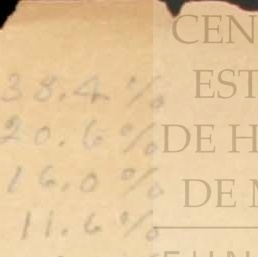 CEN
38.4 %
EST
20.6 %
DE H
16.0 %
DE M
11.6 %
FUN